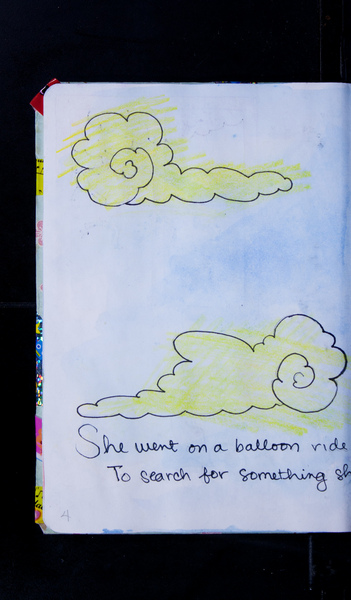 She went on a balloon ride
To search for something sh
4